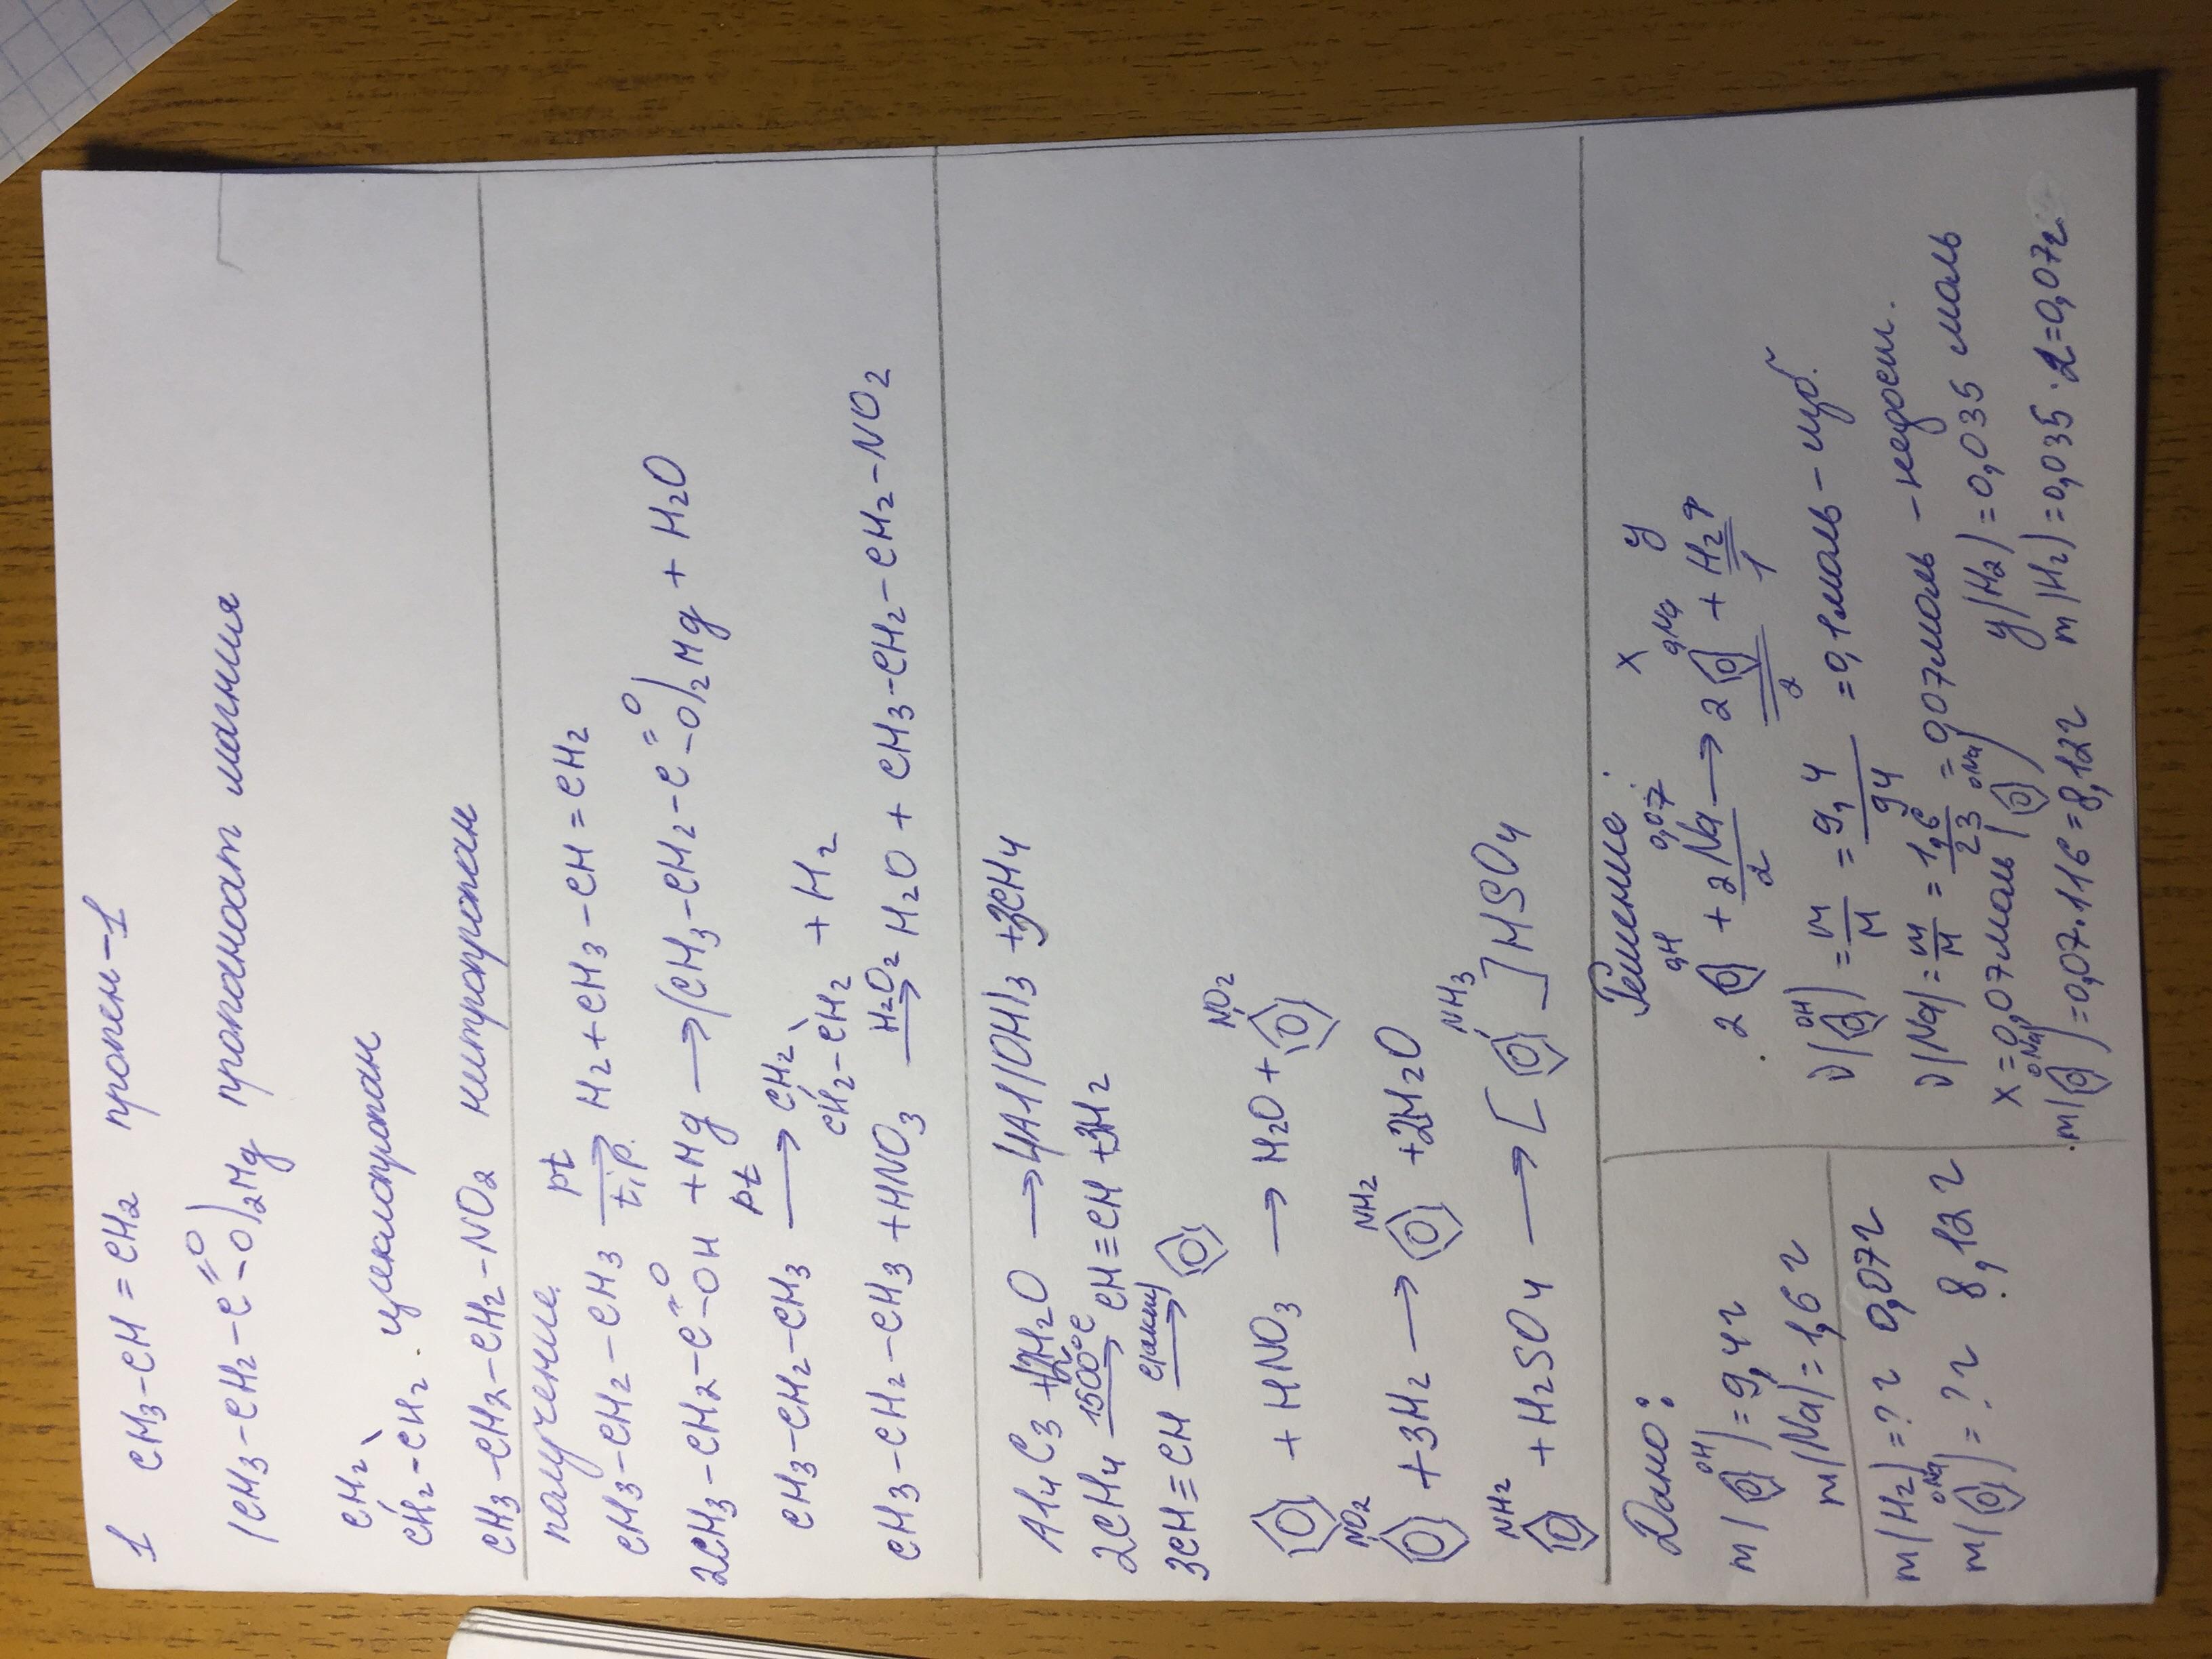 1 CH3-CH=CH2 пропен-1
(CH3-CH2-C=O-O)2Mg пропаноат магния
CH2
CH2-CH2. циклопропан
CH3-CH2-CH2-NO2 нитропропан
получение.
CH3-CH2-CH3 pt t,p. → H2+CH3-CH=CH2
2CH3-CH2-C=O-OH +Mg → (CH3-CH2-C=O-O)2Mg + H2O
CH3-CH2-CH3 pt → CH2 CH2-CH2 + H2
CH3-CH2-CH3 +HNO3 H2O2 → H2O + CH3-CH2-CH2-NO2
Al4C3 +12H2O → 4Al(OH)3 +3CH4
2CH4 1500°C → CH≡CH +3H2
3CH≡CH C(акт) →
+ HNO3 → H2O + NO2
NO2 +3H2 → NH2 +2H2O
NH2 + H2SO4 → [ NH3 ]HSO4
Дано:
m( OH )=9,4г
m(Na)=1,6г
m(H2)=?г 0,07г
m( ONa )=?г 8,12г
Решение:
0,07 x y
2 OH + 2Na → 2 ONa + H2↑
2 2 1
ν( OH )= m/M = 9,4/94 =0,1моль – изб.
ν(Na)= m/M = 1,6/23 =0,07моль – недост.
x=0,07моль( ONa ) y(H2)=0,035 моль
m( ONa )=0,07·116=8,12г m(H2)=0,035·2=0,07г